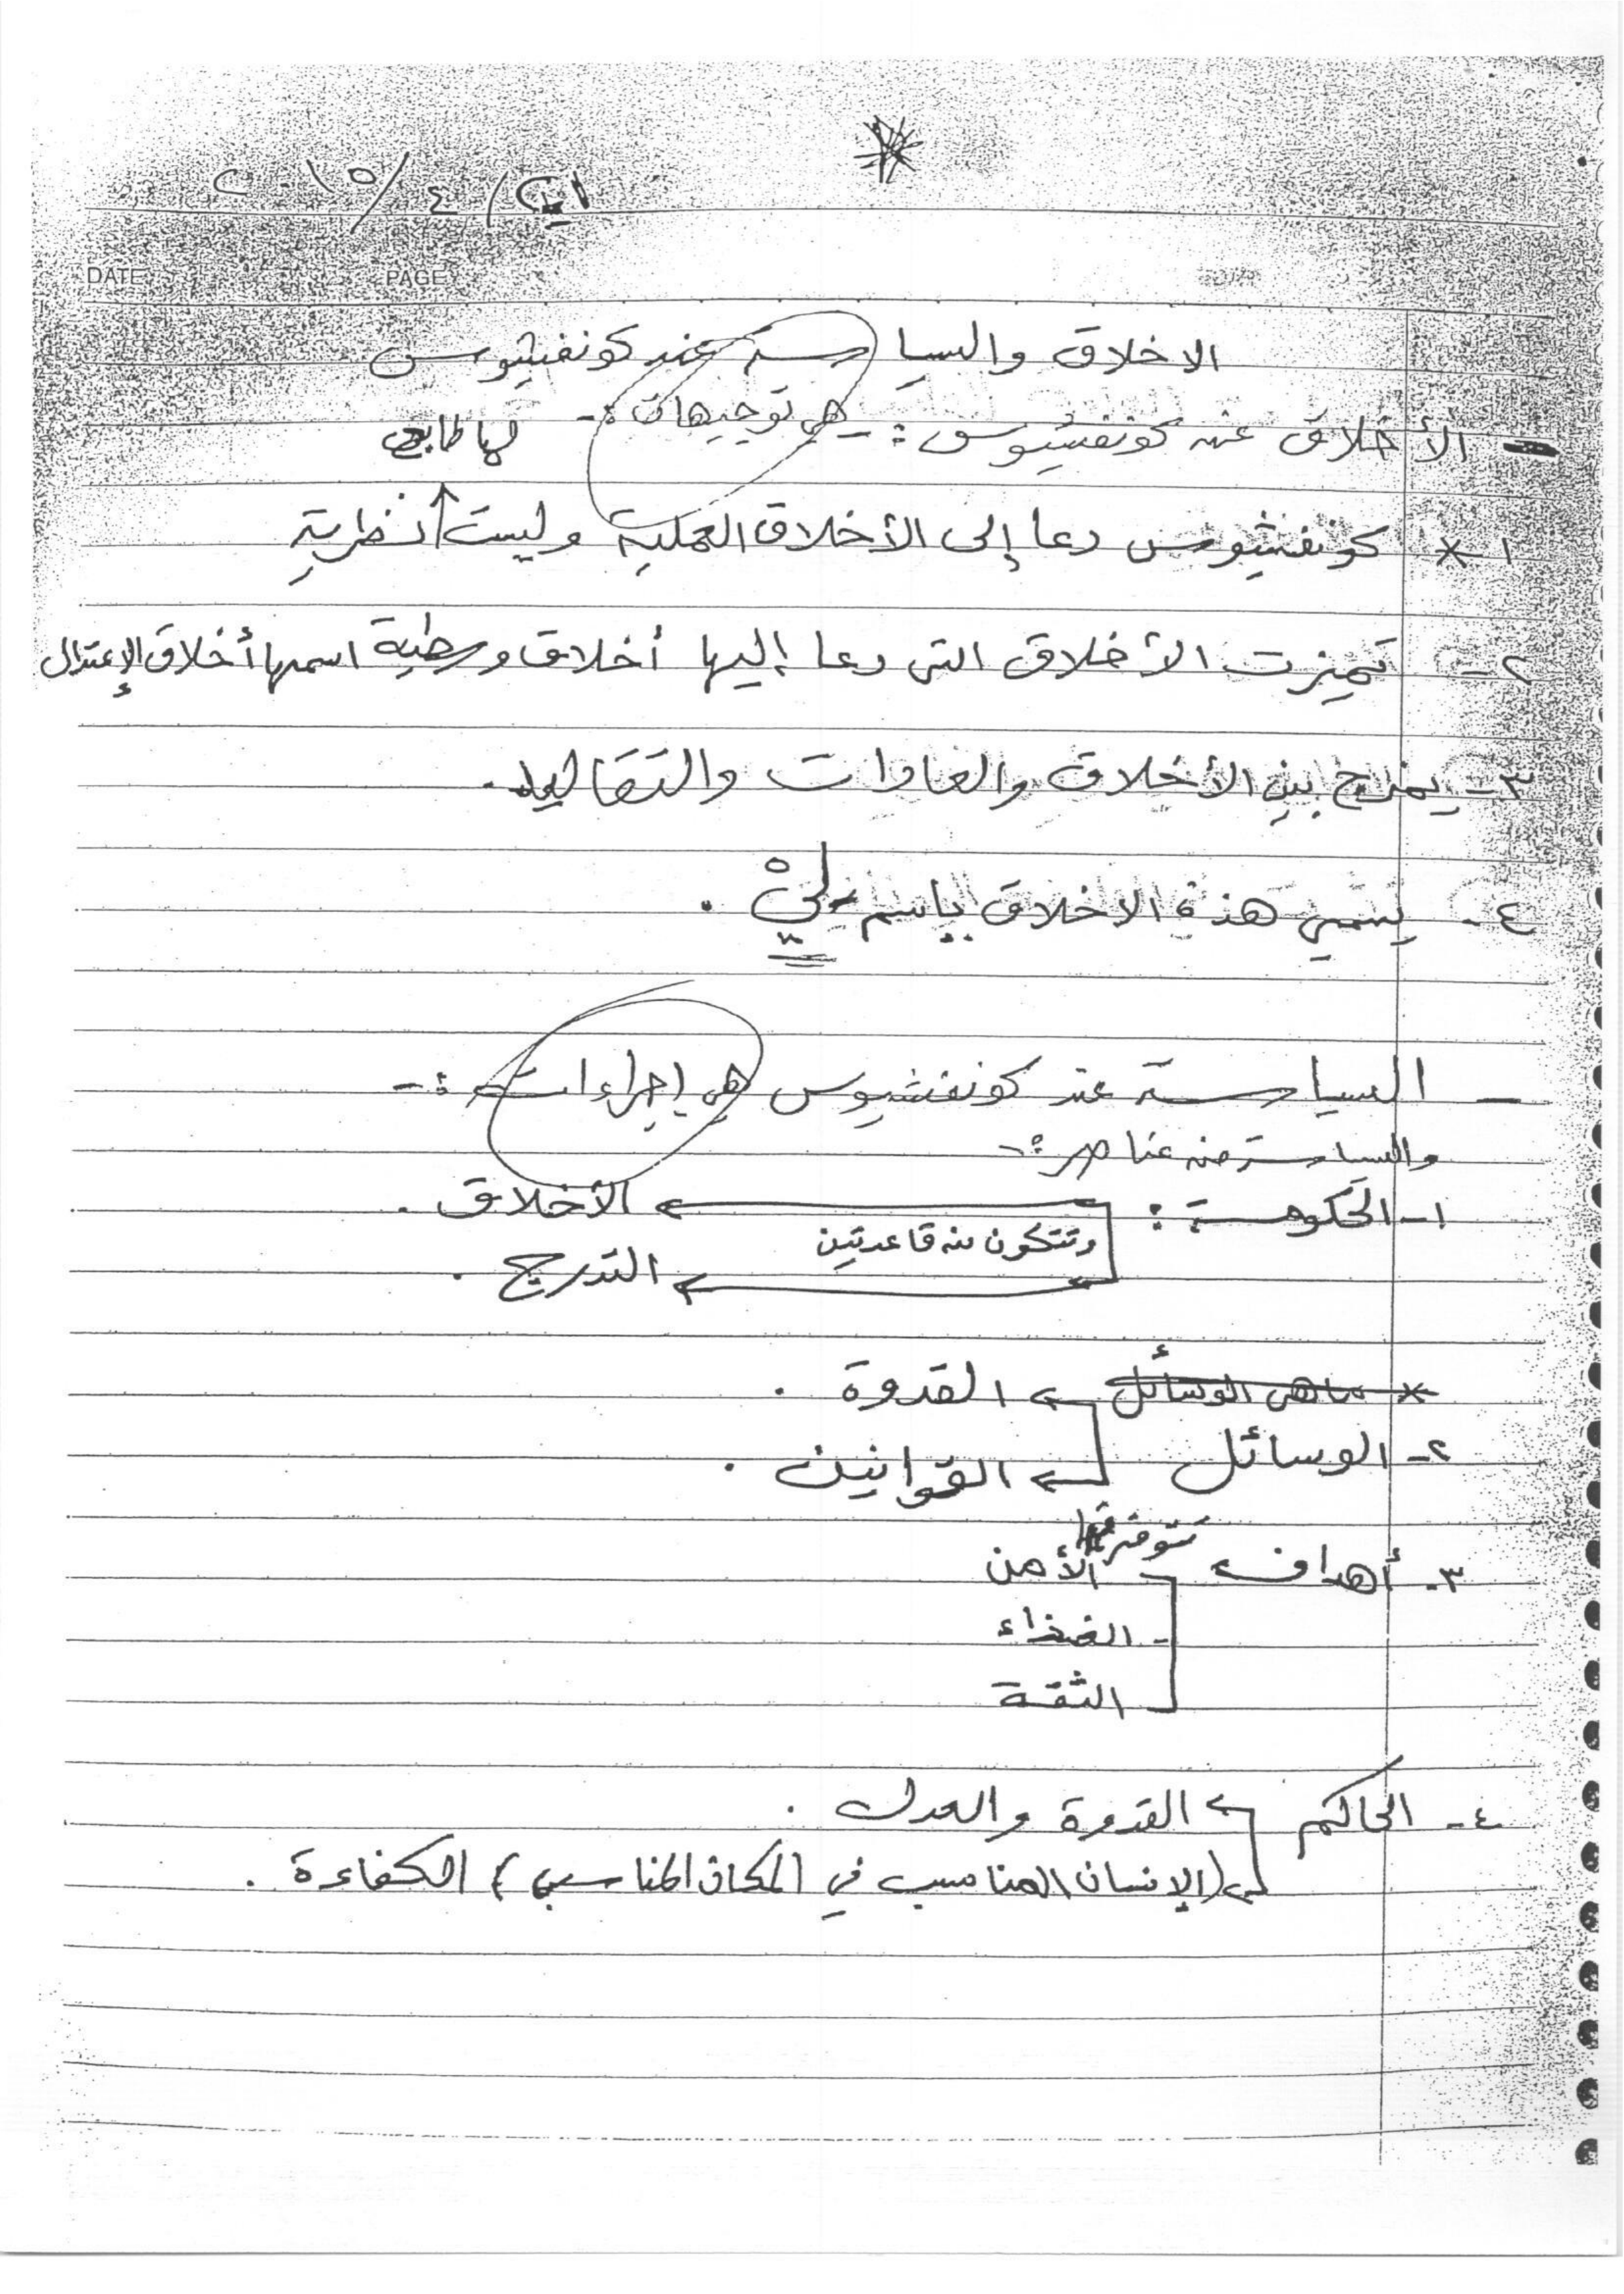 ٤/ ٢٠١٥/
DATE PAGE
الاخلاق والسياسة عند كونفشيوس
- الأخلاق عند كونفشيوس :- هي توجيهات :- لها طابع
١-* كونفشيوس دعا إلى الأخلاق العملية وليست نظرية
٢- تميزت الأخلاق التي دعا إليها أخلاق وسطية اسمها أخلاق الإعتدال
٣- يمزج بين الأخلاق والعادات والتقاليد.
٤- يسمي هذه الاخلاق باسم - لي .
- السياسة عند كونفشيوس هي إجراءات :-
والسياسة منه عناصر :-
١- الحكومة : الأخلاق .
وتتكون منه قاعدتين
التدرج .
* ماهي الوسائل القدوة .
٢- الوسائل القوانين .
٣- أهداف تتوفر فيها الأمن
- الغذاء
الثقة
٤- الحاكم القدوة والعدل .
(الإنسان المناسب في المكان المناسب) الكفاءة .